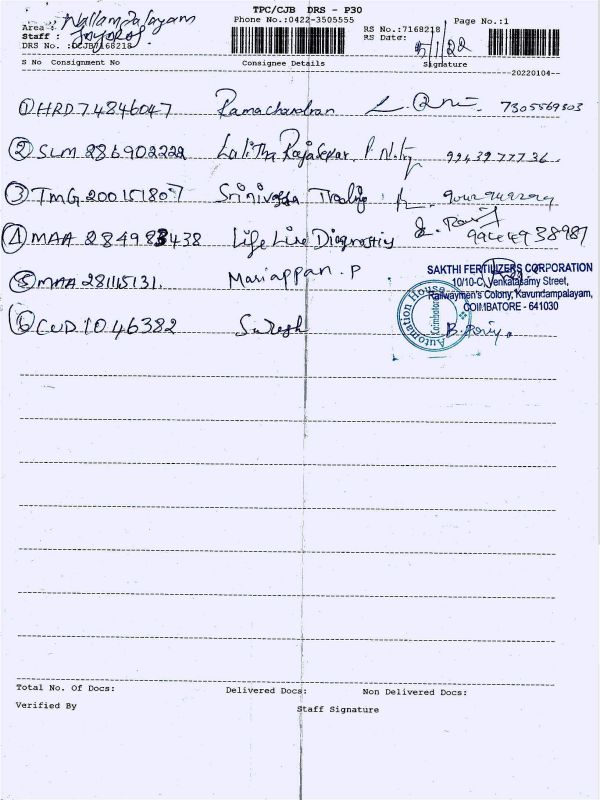 TPC/CJB DRS - P30
Area : Nallampalayam Phone No.:0422-3505555 Page No.:1
Staff : RS No.:7168218
DRS No. :DCJB7168218 RS Date: 5/1/22
Signature
S No Consignment No Consignee Details 20220104
① HRD74846047 Ramachandran 7305569503
② SLM 286902222 Lalitha Rajasekar 9943977736
③ TMG 200151807 Srinivasa Trading
④ MAA 284983438 Life Line Diagnostics 9944938987
⑤ MAA 281145131. Mariappan. P SAKTHI FERTILIZERS CORPORATION
10/10-C, Venkatasamy Street,
Railwaymen's Colony, Kavundampalayam,
COIMBATORE - 641030
⑥ CUD 1046382 Suresh Automation House Coimbatore
Total No. Of Docs: Delivered Docs: Non Delivered Docs:
Verified By Staff Signature